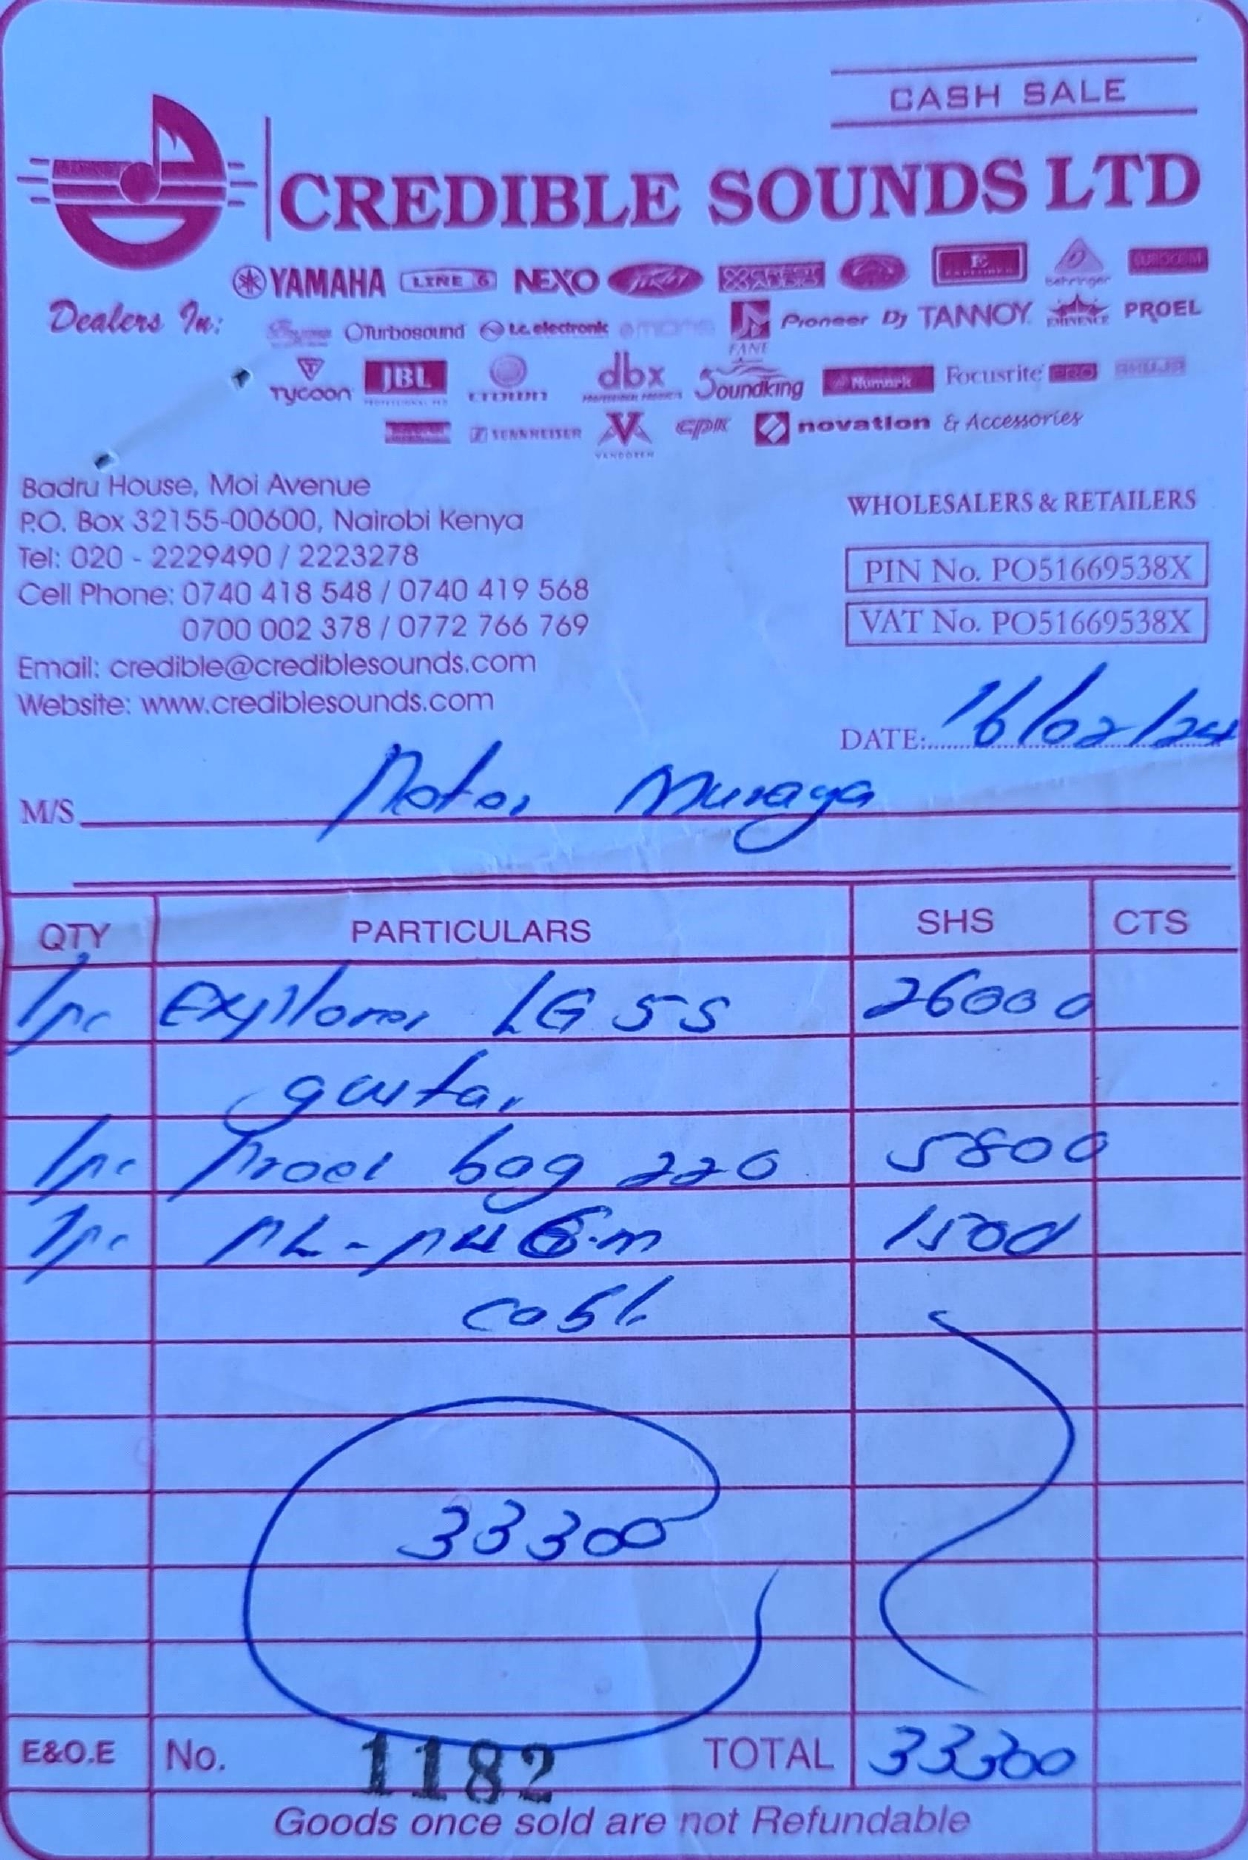 CASH SALE
CREDIBLE SOUNDS LTD
Dealers In:
YAMAHA LINE 6 NEXO Peavey E EXPLORER behringer EUROCOM
Turbosound t.c.electronic FANE Pioneer Dj TANNOY EMINENCE PROEL
TYCOON JBL crown dbx Soundking Numark Focusrite PRO AHUJA
SENNHEISER VANDOREN CPK novation & Accessories
Badru House, Moi Avenue
P.O. Box 32155-00600, Nairobi Kenya
Tel: 020 - 2229490 / 2223278
Cell Phone: 0740 418 548 / 0740 419 568
0700 002 378 / 0772 766 769
Email: credible@crediblesounds.com
Website: www.crediblesounds.com
WHOLESALERS & RETAILERS
PIN No. PO51669538X
VAT No. PO51669538X
DATE: 16/02/24
M/S Peter Muraya
QTY PARTICULARS SHS CTS
1pc Explorer LG 5S 26000
guitar
1pc Proel bag 220 5800
1pc PL-P4 6.m 1500
33300
E&O.E No. 1182 TOTAL 33300
Goods once sold are not Refundable